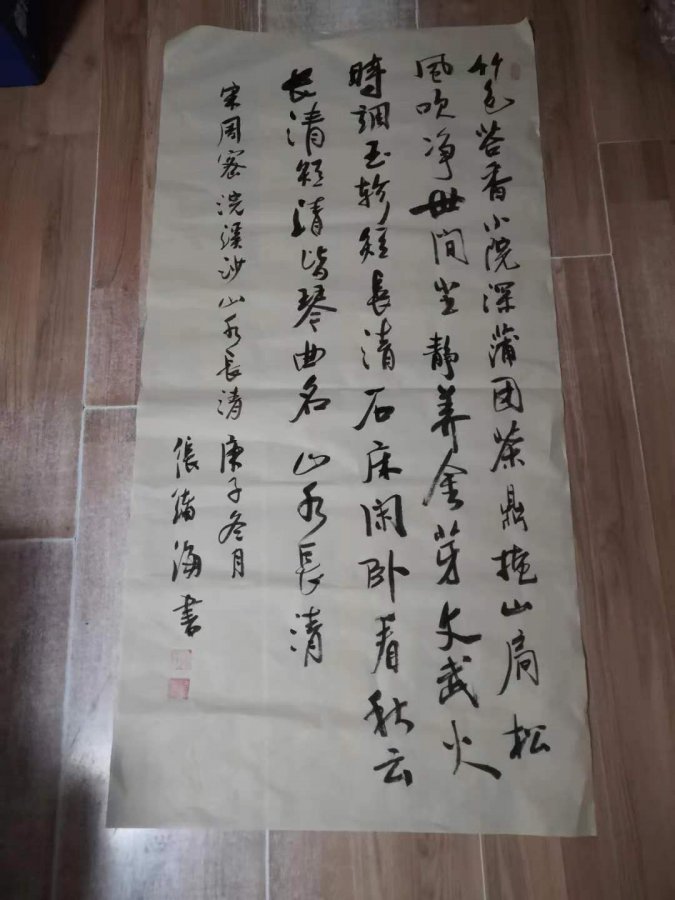 竹色苔香小院深蒲团茶鼎掩山扃松
風吹净世间尘静养金芽文武火
時調玉轸短長清石床闲卧看秋云
长清短清皆琴曲名山水長清
宋周密浣溪沙山水長清 庚子冬月
張海書